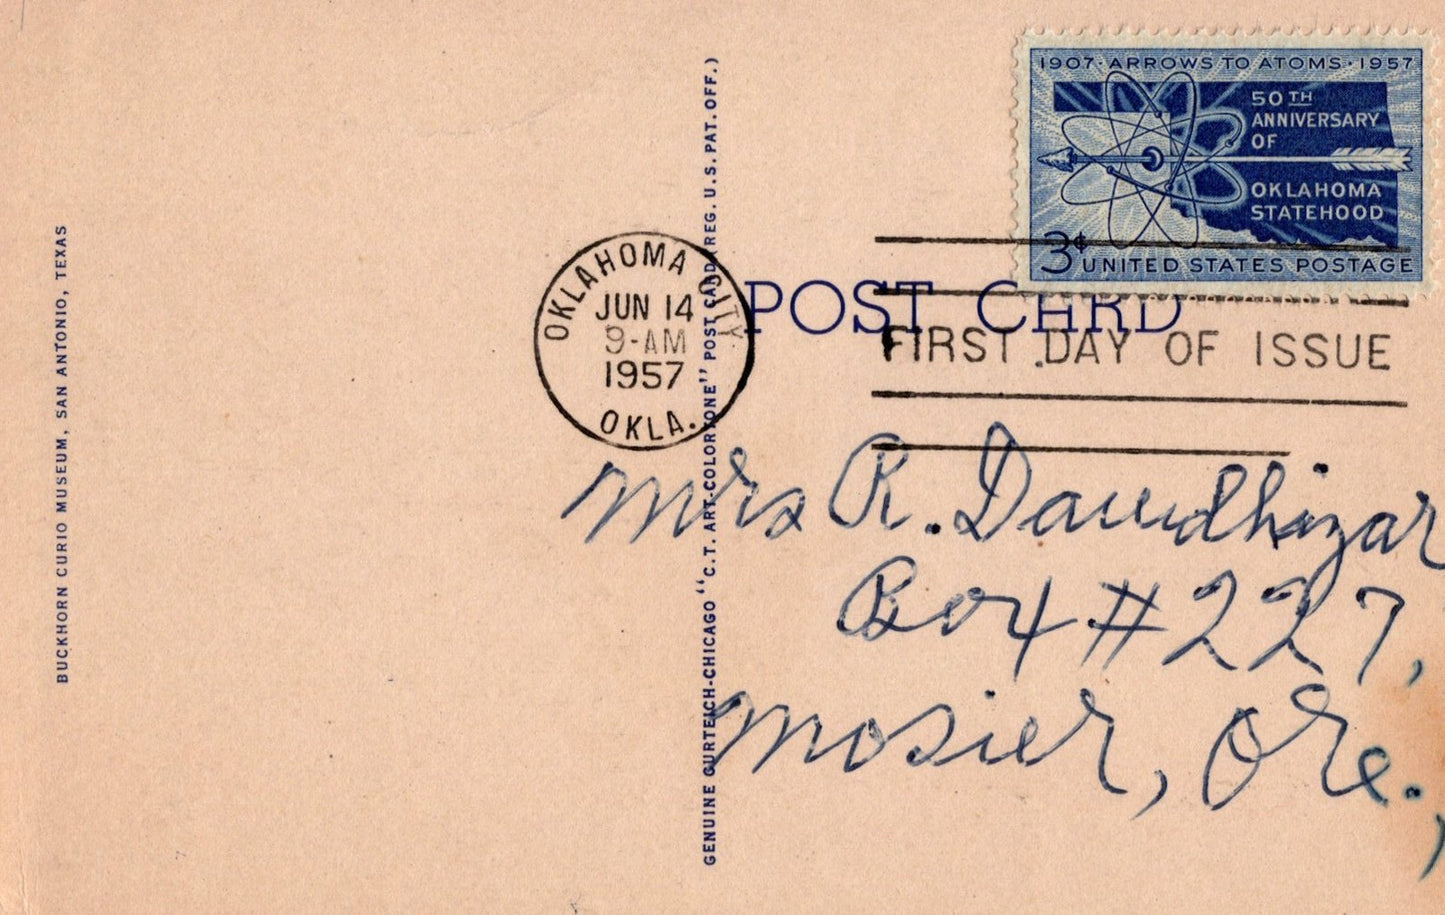 1907 · ARROWS TO ATOMS · 1957
50TH
ANNIVERSARY
OF
OKLAHOMA
STATEHOOD
3¢
UNITED STATES POSTAGE
OKLAHOMA CITY
JUN 14
9-AM
1957
OKLA.
POST CARD
FIRST DAY OF ISSUE
Mrs R. Dauudhizar
Box #227,
Mosier, Ore.,
BUCKHORN CURIO MUSEUM, SAN ANTONIO, TEXAS
GENUINE CURTEICH-CHICAGO "C.T. ART-COLORTONE" POST CARD (REG. U.S. PAT. OFF.)